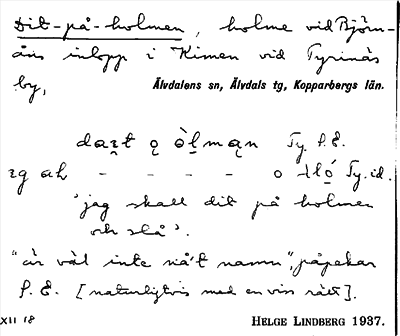 Dit-på-holmen, holme vid Björn-
åns inlopp i Kimen vid Tyrinäs
by, Älvdalens sn, Älvdals tg, Kopparbergs län.
Ty. S. E.
Ty. id.
'jag skall dit på holmen
och slå'.
"är väl inte nå't namn", påpekar
S. E. [naturligtvis med en viss rätt].
XII 18 HELGE LINDBERG 1937.